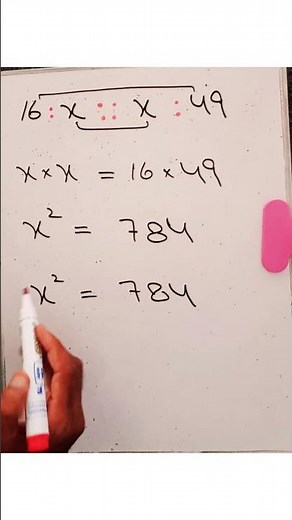 16 : x :: x : 49
x × x = 16 × 49
x² = 784
x² = 784